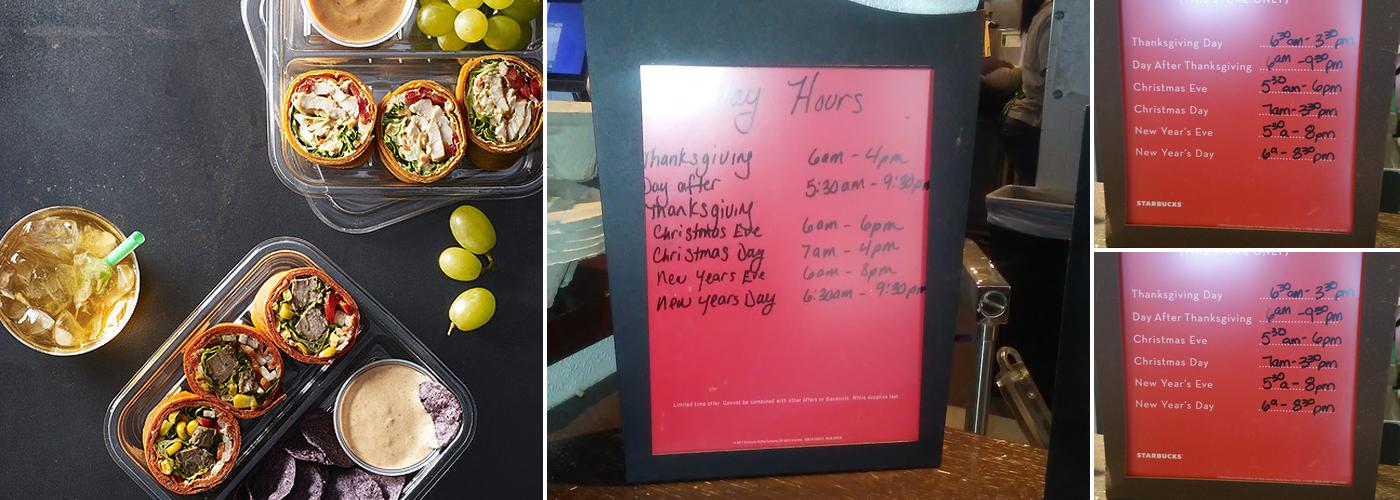 ay Hours
Thanksgiving 6am - 4pm
Day after 5:30am - 9:30pm
Thanksgiving
Christmas Eve 6am - 6pm
Christmas Day 7am - 4pm
New Years Eve 6am - 8pm
New Years Day 6:30am - 9:30pm
Limited time offer. Cannot be combined with other offers or discounts. While supplies last
(THIS STORE ONLY)
Thanksgiving Day 6³⁰am - 3³⁰pm
Day After Thanksgiving 6am - 9³⁰pm
Christmas Eve 5³⁰am - 6pm
Christmas Day 7am - 3³⁰pm
New Year's Eve 5³⁰a - 8pm
New Year's Day 6a - 8³⁰pm
STARBUCKS
(THIS STORE ONLY)
Thanksgiving Day 6³⁰am - 3³⁰pm
Day After Thanksgiving 6am - 9³⁰pm
Christmas Eve 5³⁰am - 6pm
Christmas Day 7am - 3³⁰pm
New Year's Eve 5³⁰a - 8pm
New Year's Day 6a - 8³⁰pm
STARBUCKS